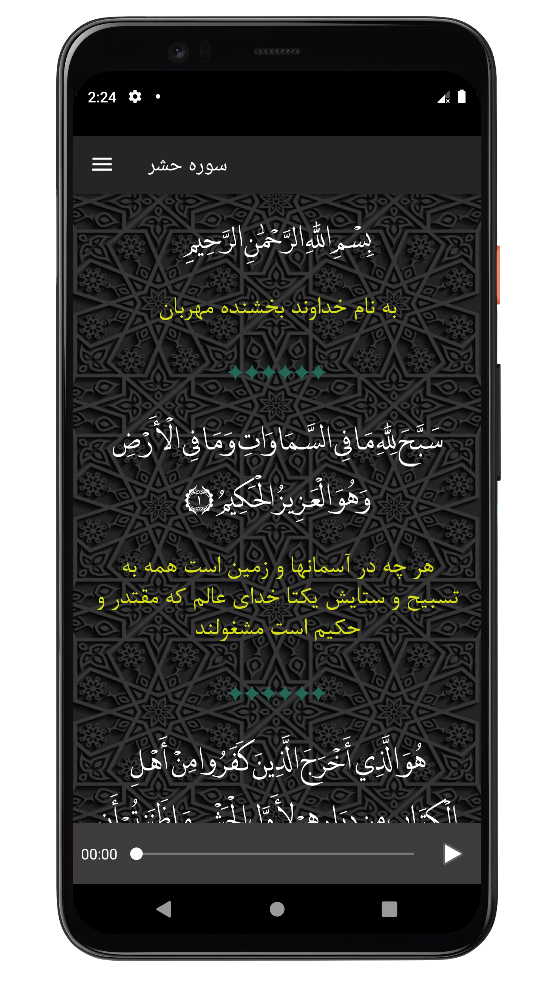 2:24
سوره حشر
بِسْمِ اللَّهِ الرَّحْمَٰنِ الرَّحِيمِ
به نام خداوند بخشنده مهربان
سَبَّحَ لِلَّهِ مَا فِي السَّمَاوَاتِ وَمَا فِي الْأَرْضِ
وَهُوَ الْعَزِيزُ الْحَكِيمُ ۝١
هر چه در آسمانها و زمین است همه به
تسبیح و ستایش یکتا خدای عالم که مقتدر و
حکیم است مشغولند
هُوَ الَّذِي أَخْرَجَ الَّذِينَ كَفَرُوا مِنْ أَهْلِ
الْكِتَابِ مِن دِيَارِهِمْ لِأَوَّلِ الْحَشْرِ مَا ظَنَنتُمْ أَن
00:00